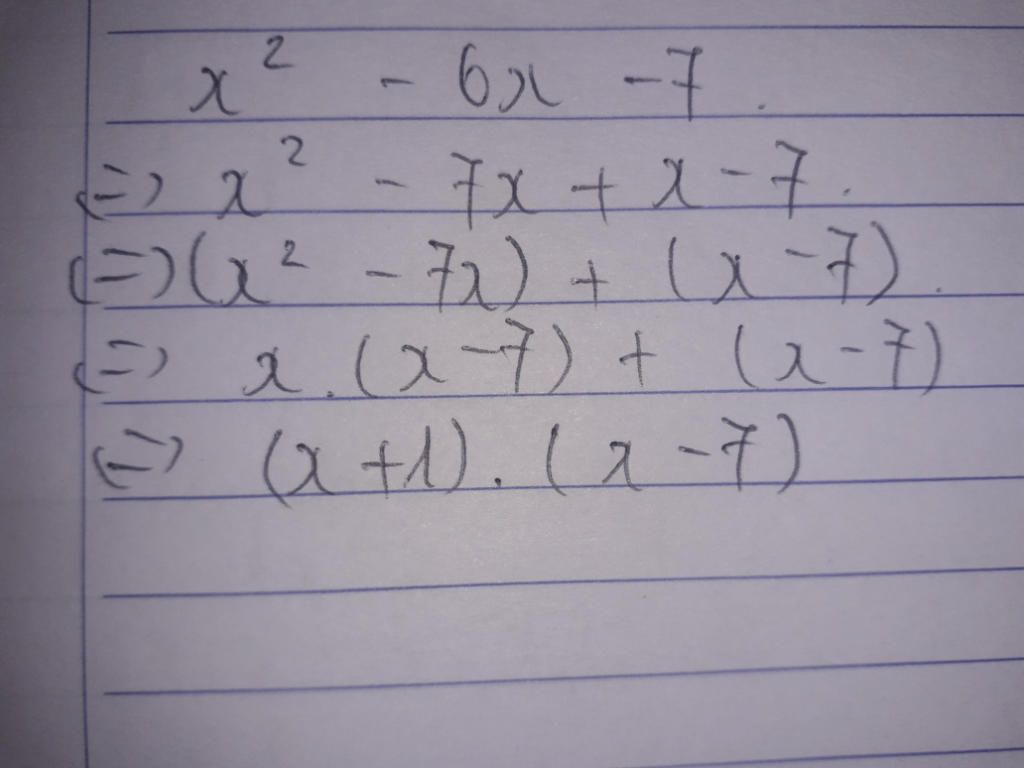 x² - 6x - 7.
<=> x² - 7x + x - 7.
<=> (x² - 7x) + (x - 7).
<=> x.(x - 7) + (x - 7)
<=> (x + 1).(x - 7)